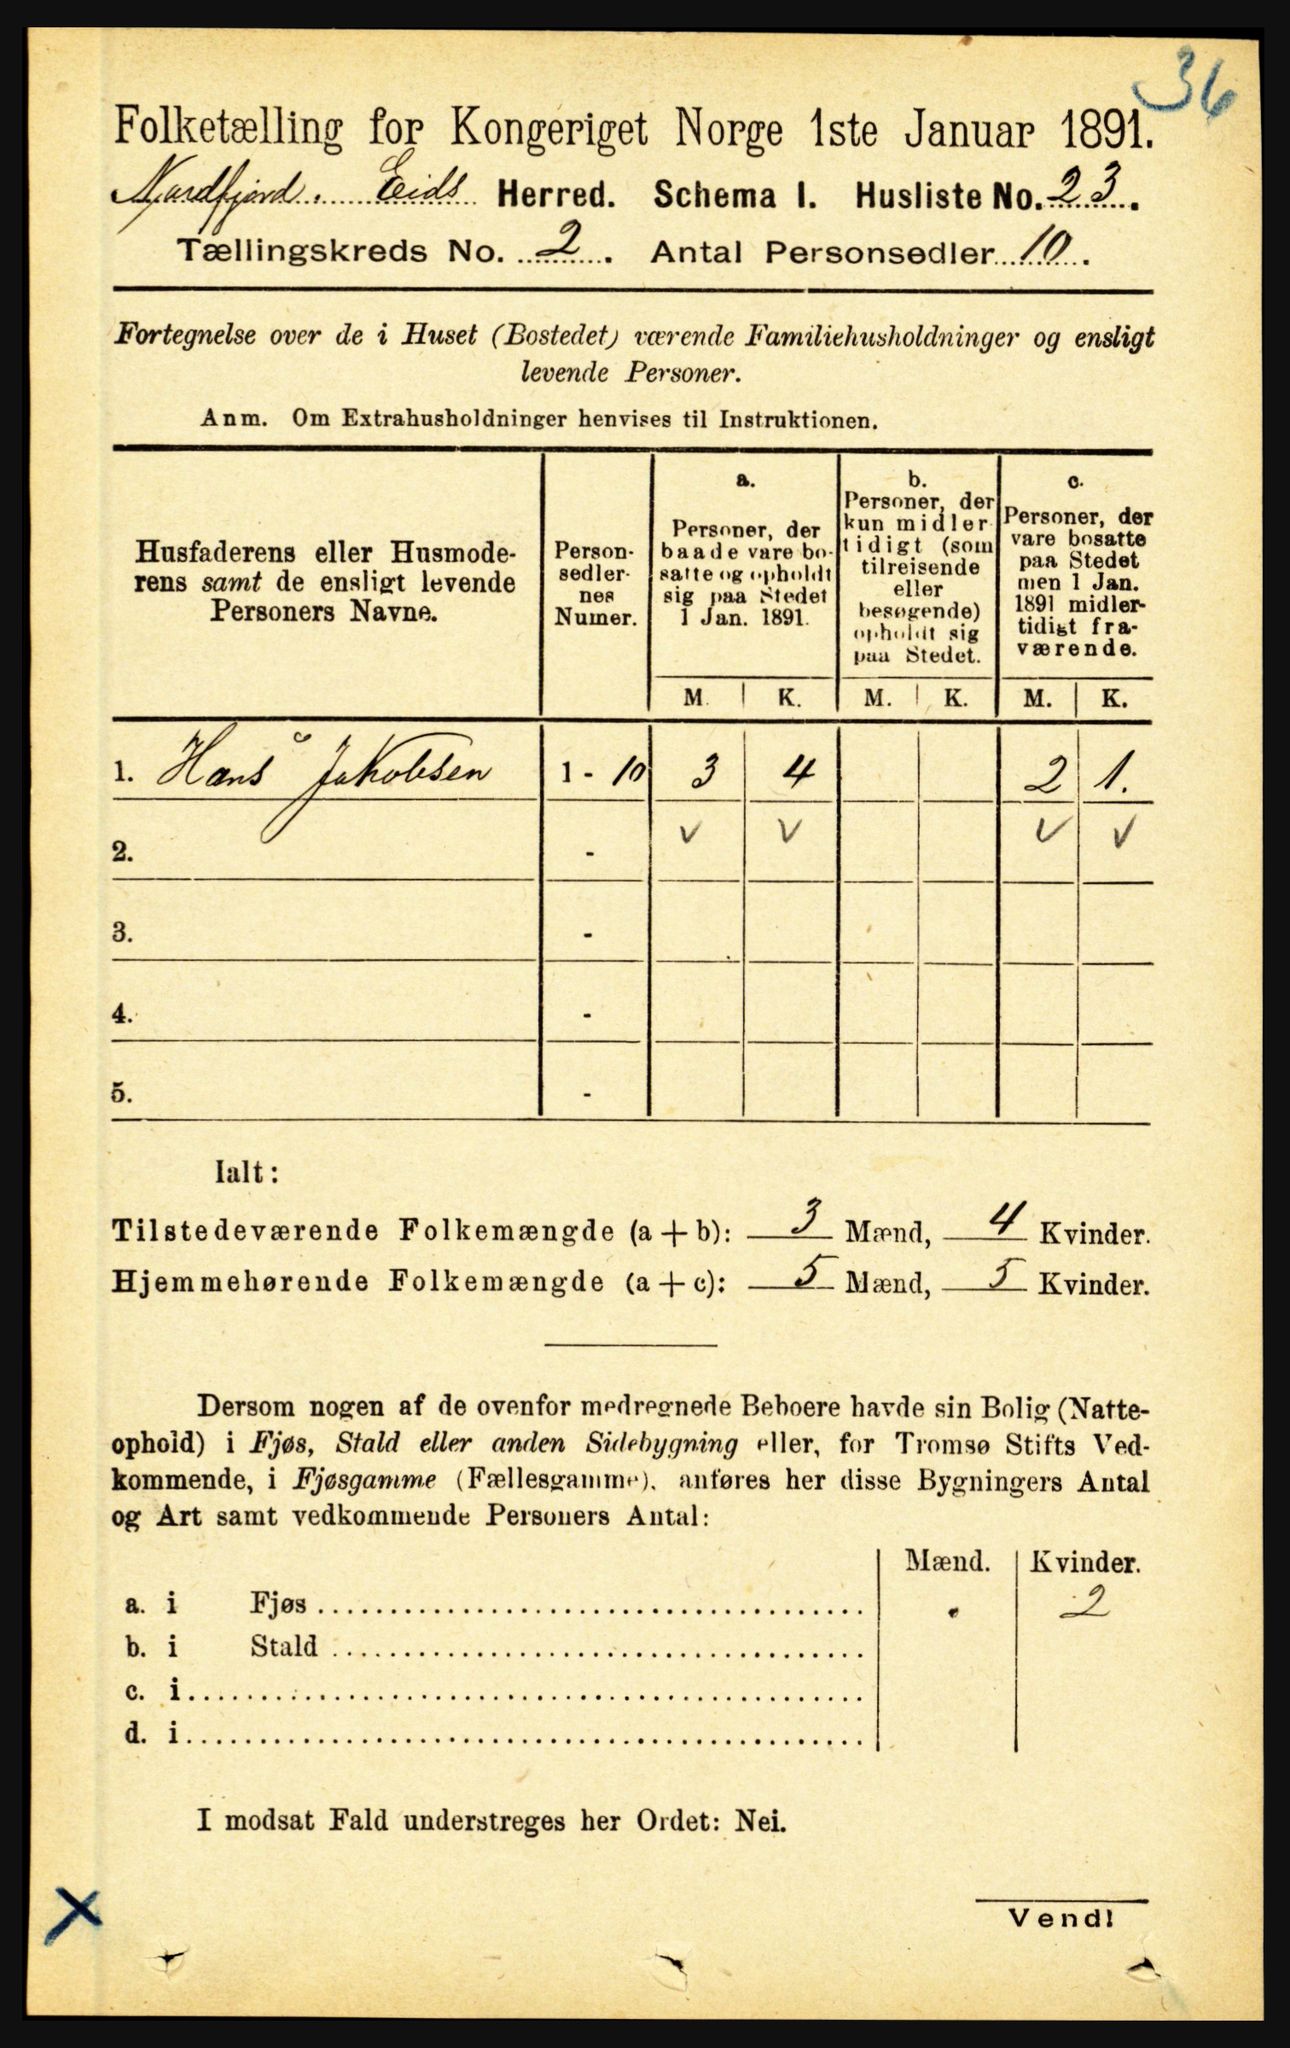 36
Folketælling for Kongeriget Norge 1ste Januar 1891.
Nordfjord. Eids Herred. Schema I. Husliste No. 23.
Tællingskreds No. 2. Antal Personsedler 10.
Fortegnelse over de i Huset (Bostedet) værende Familiehusholdninger og ensligt
levende Personer.
Anm. Om Extrahusholdninger henvises til Instruktionen.
Husfaderens eller Husmode-
rens samt de ensligt levende
Personers Navne.
Person-
sedler-
nes
Numer.
a.
Personer, der
baade vare bo-
satte og opholdt
sig paa Stedet
1 Jan. 1891.
b.
Personer, der
kun midler-
tidigt (som
tilreisende
eller
besøgende)
opholdt sig
paa Stedet.
c.
Personer, der
vare bosatte
paa Stedet
men 1 Jan.
1891 midler-
tidigt fra-
værende.
M. K. M. K. M. K.
1. Hans Jakobsen 1 - 10 3 4 2 1.
2. - ✓ ✓ ✓ ✓
3. -
4. -
5. -
Ialt:
Tilstedeværende Folkemængde (a + b): 3 Mænd, 4 Kvinder.
Hjemmehørende Folkemængde (a + c): 5 Mænd, 5 Kvinder.
Dersom nogen af de ovenfor medregnede Beboere havde sin Bolig (Natte-
ophold) i Fjøs, Stald eller anden Sidebygning eller, for Tromsø Stifts Ved-
kommende, i Fjøsgamme (Fællesgamme), anføres her disse Bygningers Antal
og Art samt vedkommende Personers Antal:
Mænd. Kvinder.
a. i Fjøs . 2
b. i Stald
c. i
d. i
I modsat Fald understreges her Ordet: Nei.
Vend!